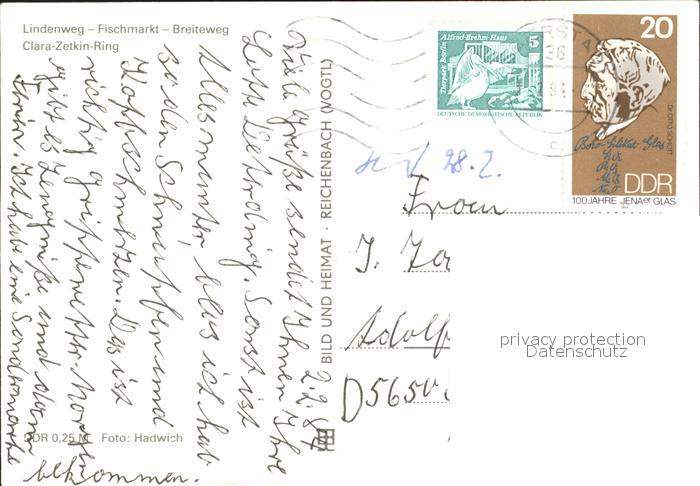 Lindenweg – Fischmarkt – Breiteweg
Clara-Zetkin-Ring
2.2.84
Viele Grüße sendet Ihnen Ihre
Sonst ist
Alles munter, blos ich hab
so den Schnupfen und
Kopfschmerzen. Das ist
richtig Grippewetter. Morgen
gibt es Zeugniße und dann
Ferien. Ich habe eine Sondermarke
bekommen.
DDR 0,25 M Foto: Hadwich
BILD UND HEIMAT · REICHENBACH (VOGTL)
Alfred-Brehm-Haus
Tierpark Berlin
5
DEUTSCHE DEMOKRATISCHE REPUBLIK
20
Dr. OTTO SCHOTT
Boro-Silikat-Glas
DDR
100 JAHRE JENAer GLAS
28.2.
Frau
J. Za
Adolf
D5650
privacy protection
Datenschutz